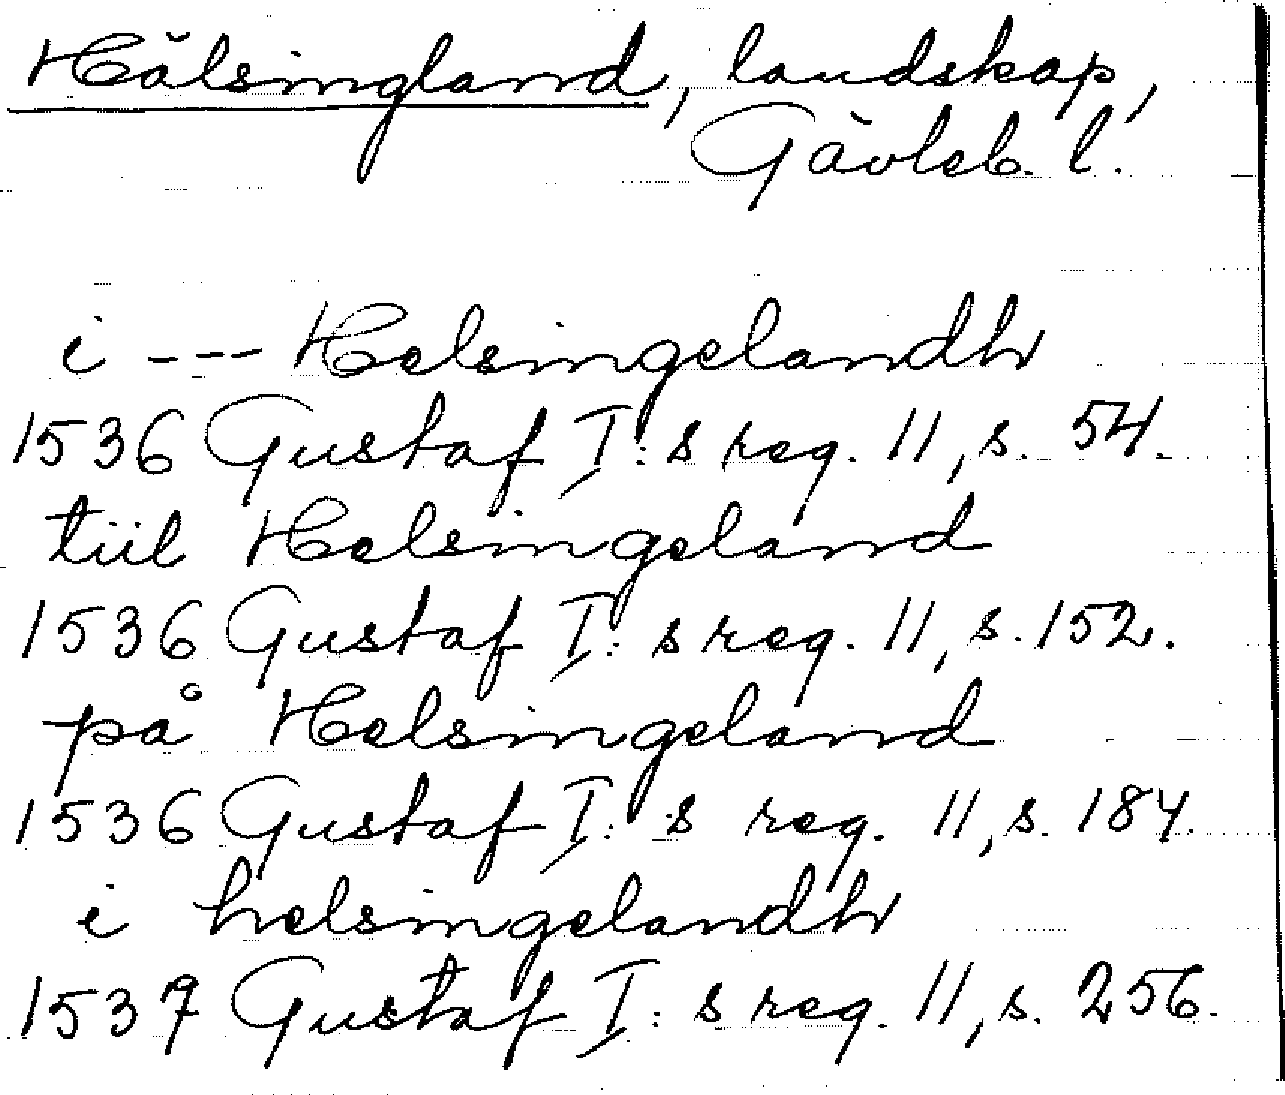 Hälsingland, landskap,
Gävleb. l.
i --- Helsingelandh
1536 Gustaf I:s reg. 11, s. 54.
tiil Helsingeland
1536 Gustaf I:s reg. 11, s. 152.
på Helsingeland
1536 Gustaf I:s reg. 11, s. 184.
i helsingelandh
1537 Gustaf I:s reg. 11, s. 256.